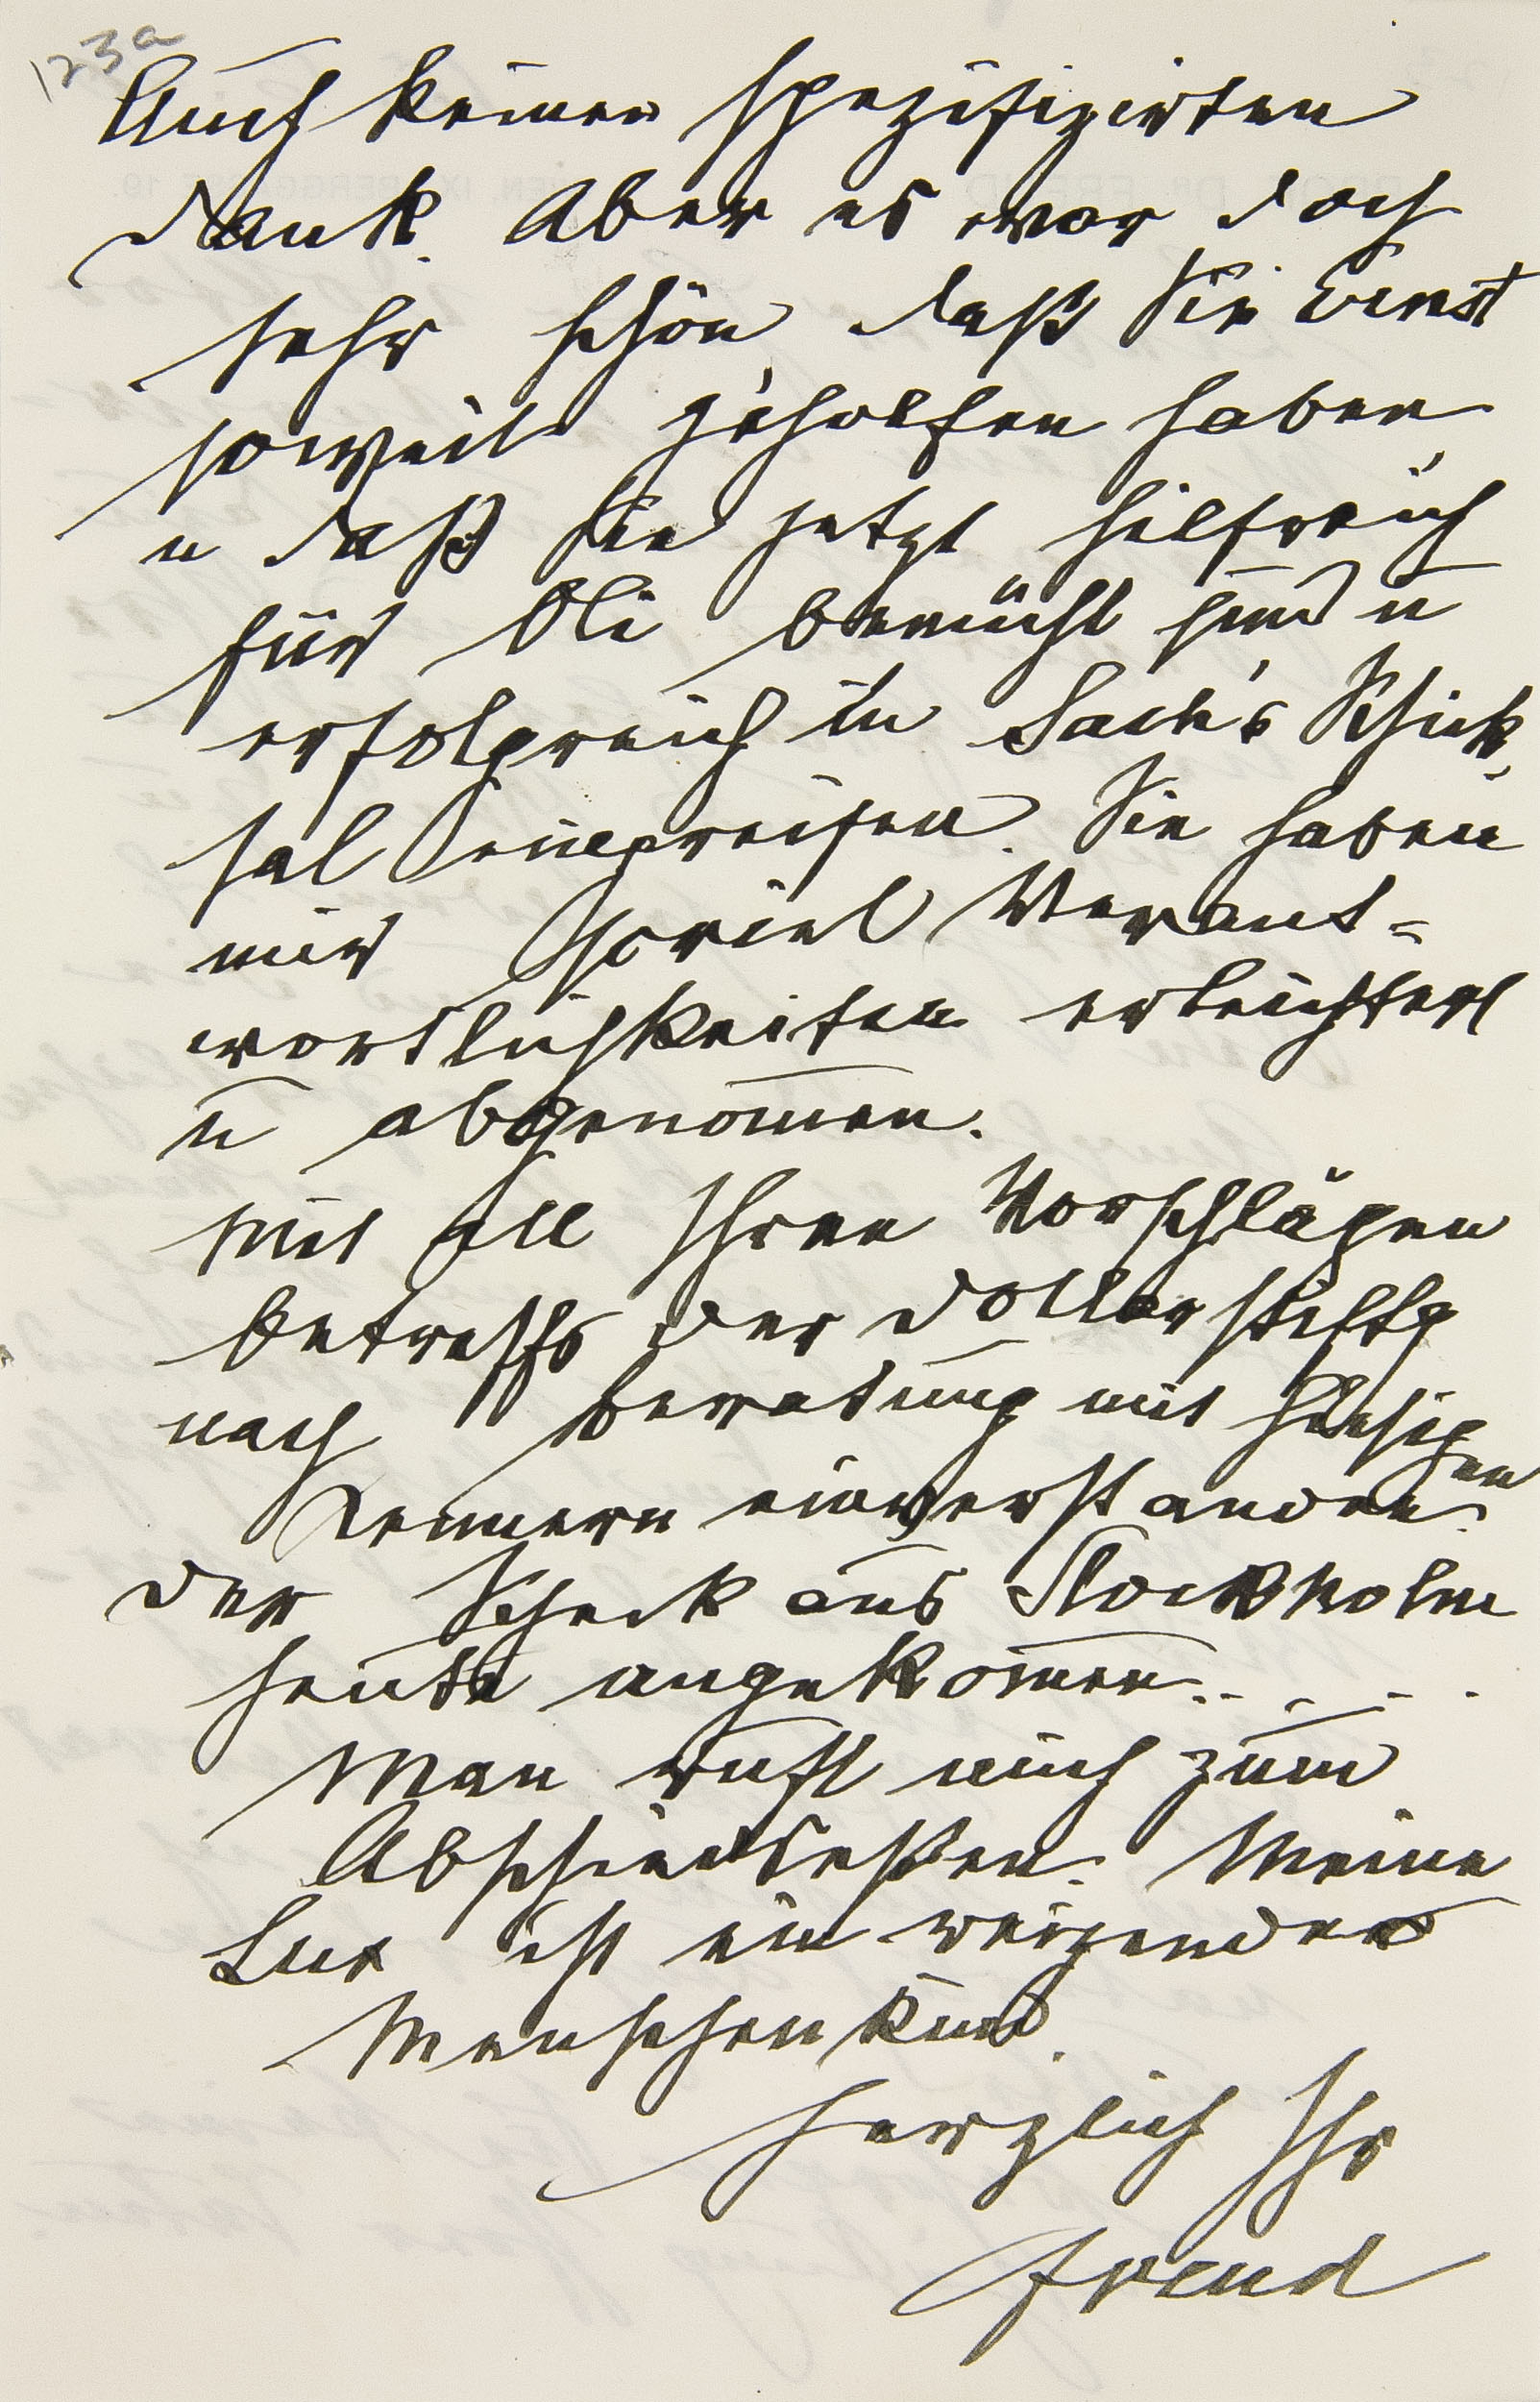 123a
Auch keinen spezifizirten
Dank. Aber es war doch
sehr schön, daß Sie Ernst
soweit geholfen haben
u daß Sie jetzt hilfreich
für Oli bemüht sind u
erfolgreich in Sachs Schick
sal eingreifen. Sie haben
mir soviel Verant-
wortlichkeiten erleichtert
u abgenom̄en.
Mit all Ihren Vorschlägen
betreffs der Dollarstiftg
nach Beratung mit hiesigen
Kennern einverstanden.
Der Scheck aus Stockholm
heute angekom̄en. . . . . .
Man ruft mich zum
Abschiedsessen. Meine
Lux ist ein reizendes
Menschenkind.
Herzlich Ihr
Freud